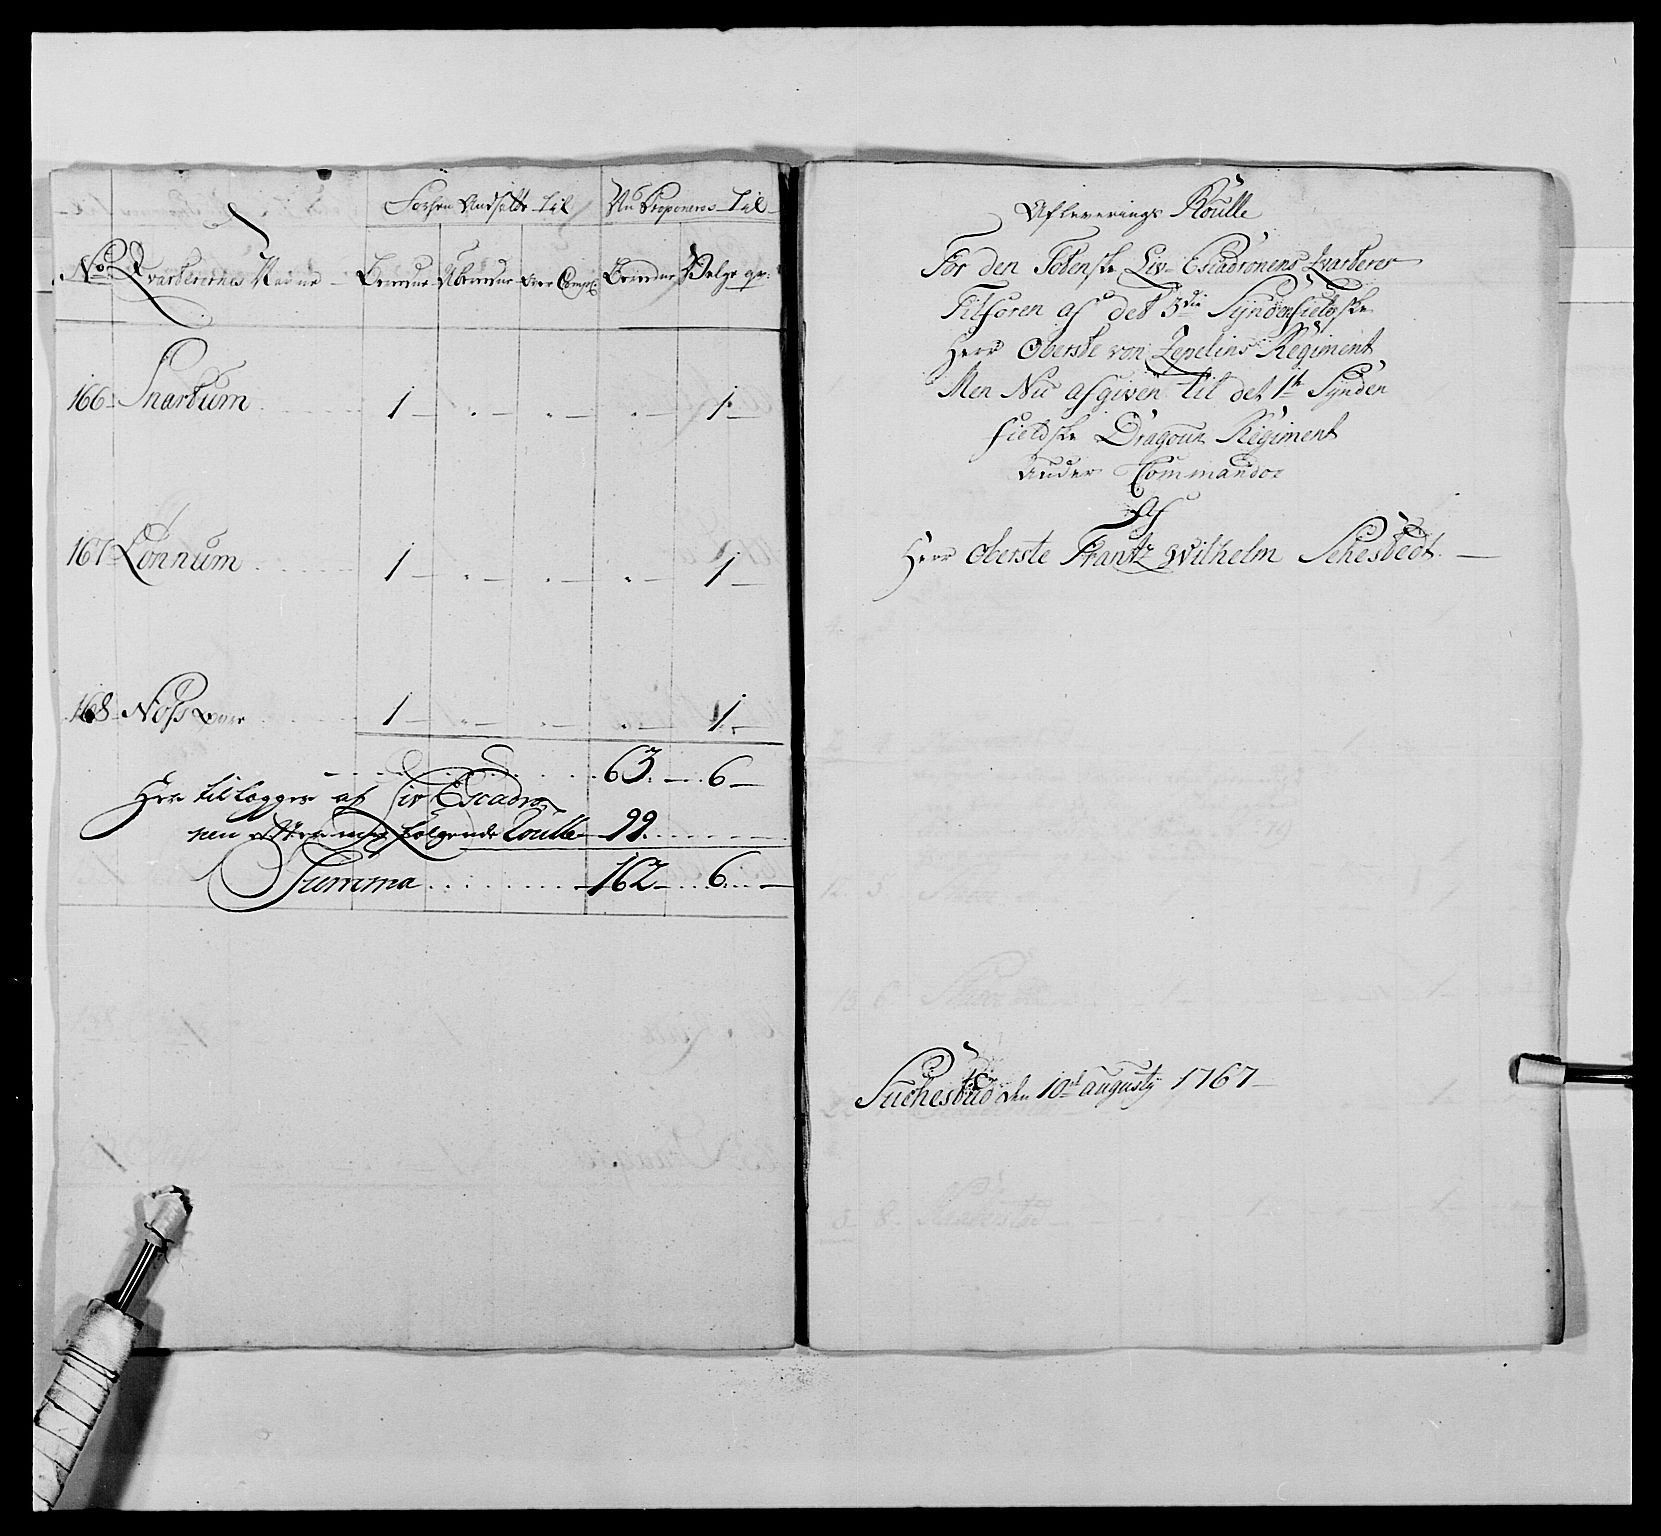 Forhen Andsatte til
Nu Proponeres til
No
Qvarterernes Nafne
Beredne
Uberedne
over Comp:
Beredne
Velge qv:
166 Snartum 1 — 1
167 Lonnum 1 — 1
168 Noss 1 — 1
63 6
Her tillegges af Liv Escadro
nen efter følgende Roulle 99
Summa 162 6
Afleverings Roulle
For den Totenske Liv-Escadronens Qvarterer
Tilforen af det 3die Syndenfieldske
Herr Oberste von Zepelins Regiment
Men Nu afgiven til det 1te Synden
fieldske Dragoun Regiment
under Commando
Af
Herr Oberste Frantz Wilhelm Sehestedt
den 10de augusty 1767